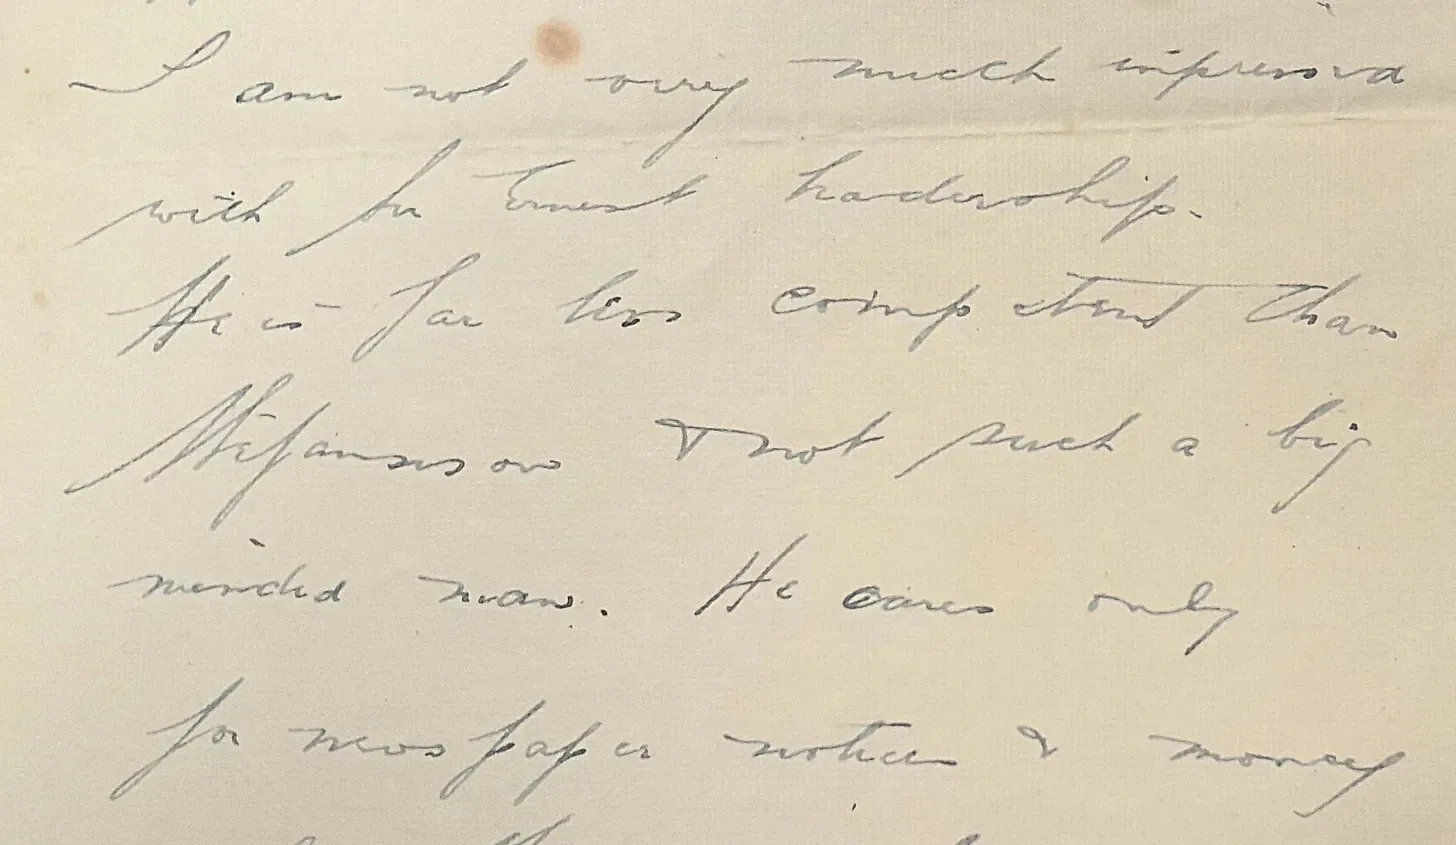 I am not very much impressed
with Sir Ernest leadership.
He is far less competent than
Stefansson & not such a big
minded man. He cares only
for newspaper notices & money